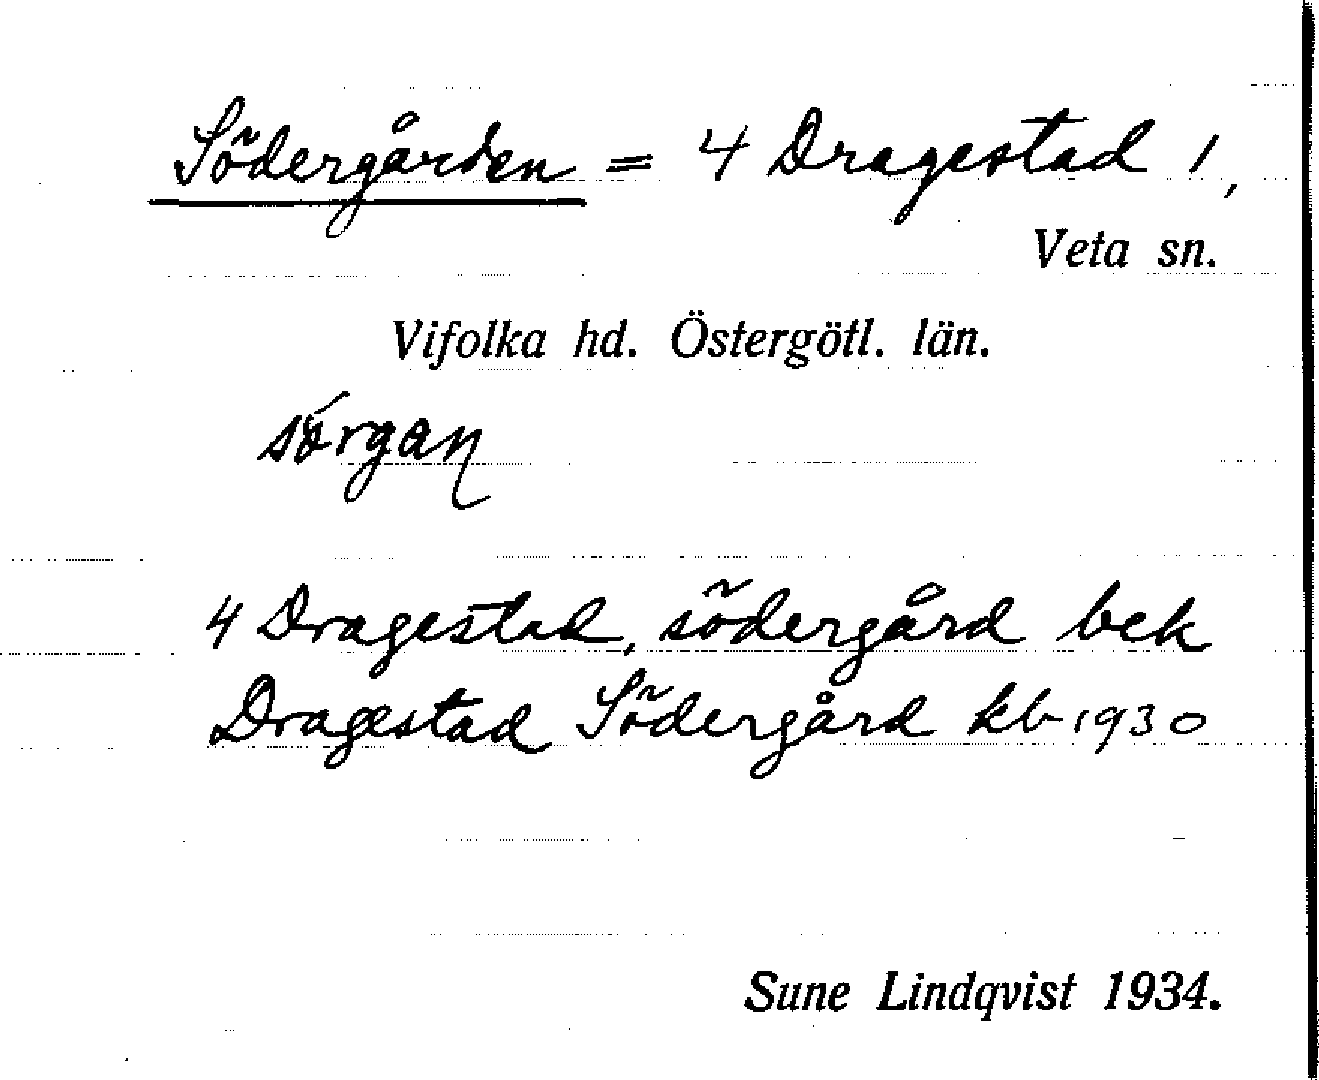 Södergården = 4 Dragestad 1,
Veta sn.
Vifolka hd. Östergötl. län.
4 Dragestad, södergård bek
Dragestad Södergård kb 1930
Sune Lindqvist 1934.